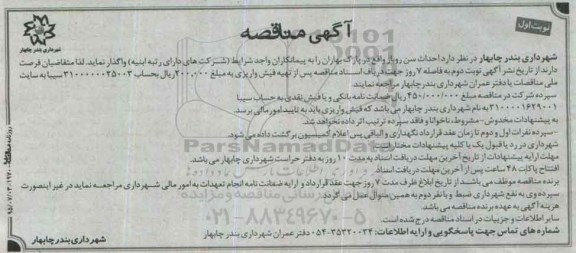 نوبت اول
آگهی مناقصه
شهرداری بندر چابهار
شهرداری بندر چابهار در نظر دارد احداث سن روباز واقع در پارک بهاران را به پیمانکاران واجد شرایط (شرکت های دارای رتبه ابنیه) واگذار نماید. لذا متقاضیان فرصت
دارند از تاریخ نشر آگهی نوبت دوم به فاصله ۷ روز جهت دریافت اسناد مناقصه پس از تهیه فیش واریزی به مبلغ ۲۰۰,۰۰۰ ریال بحساب ۳۱۰۰۰۰۰۰۲۵۰۰۳ سیبا به سایت
ملی مناقصات یا دفتر عمران شهرداری بندر چابهار مراجعه نمایند.
سپرده شرکت در مناقصه مبلغ ۴۵۰/۰۰۰/۰۰۰ ریال ضمانت نامه بانکی و یا فیش نقدی به حساب سیبا
۳۱۰۰۰۰۱۶۲۹۰۰۱ به نام شهرداری بندر چابهار می باشد که فیش واریزی باید به تایید امور مالی برسد.
به پیشنهادات مخدوش - مشروط، ناخوانا و فاقد سپرده ترتیب اثر داده نخواهد شد.
-سپرده نفرات اول و دوم تا زمان عقد قرارداد نگهداری و الباقی پس از اعلام کمیسیون برگشت داده می شود.
شهرداری در رد یا قبول یک یا کلیه پیشنهادات مختار است.
مهلت ارایه پیشنهادات از تاریخ آخرین مهلت دریافت اسناد به مدت ۱۰ روز به دفتر حراست شهرداری چابهار می باشد.
افتتاح پاکات ۴۸ ساعت پس از آخرین مهلت دریافت اسناد.
برنده مناقصه موظف می باشد از تاریخ ابلاغ ظرف مدت ۷ روز جهت عقد قرارداد و ارایه ضمانت نامه انجام تعهدات به امور مالی شهرداری مراجعه نماید در غیر اینصورت
سپرده وی به نفع شهرداری ضبط و با نفر دوم به همین منوال عمل می گردد.
هزینه آگهی به عهده برنده مناقصه می باشد.
سایر اطلاعات و جزییات در اسناد مناقصه درج شده است.
شماره های تماس جهت پاسخگویی و ارایه اطلاعات: ۳۵۳۲۰۰۳۴-۰۵۴ دفتر عمران شهرداری بندر چابهار
شهرداری بندر چابهار
ParsNamadData
۰۲۱-۸۸۳۴۹۶۷۰-۵